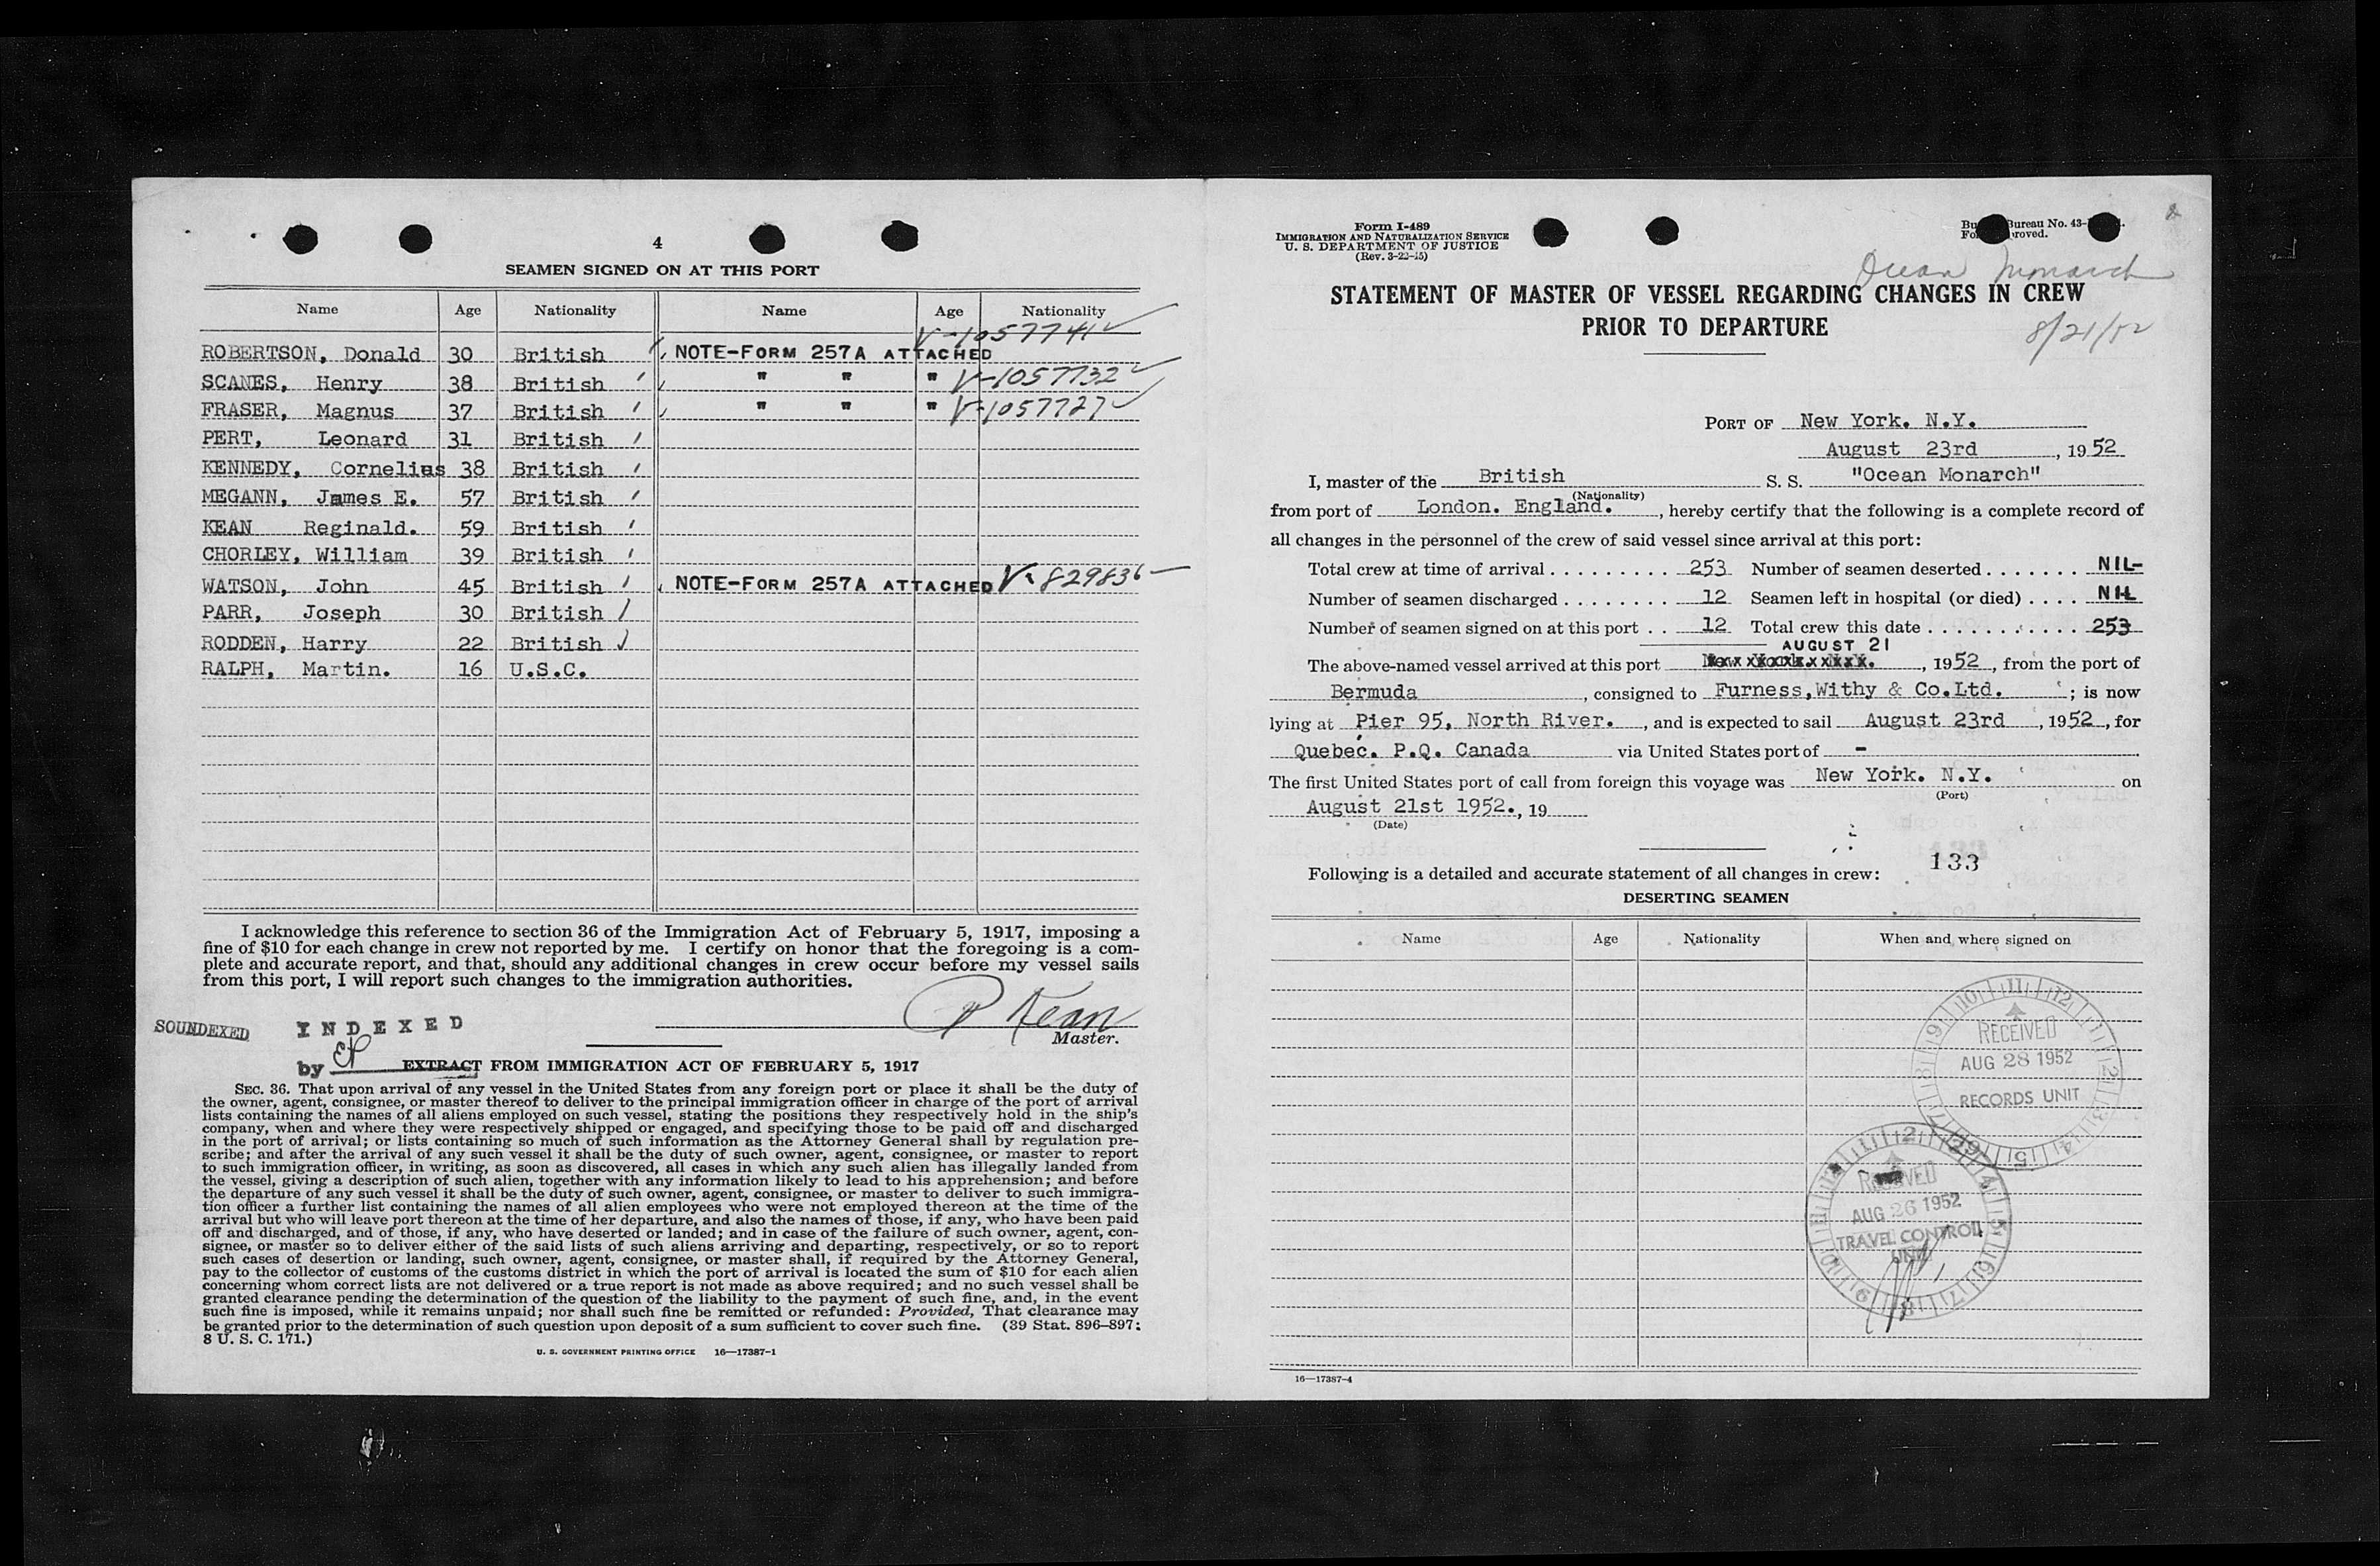 4
SEAMEN SIGNED ON AT THIS PORT
Name Age Nationality Name Age Nationality
V-1057741
ROBERTSON, Donald 30 British NOTE-FORM 257A ATTACHED
SCANES, Henry 38 British " " " V-1057732
FRASER, Magnus 37 British " " " V-1057727
PERT, Leonard 31 British
KENNEDY, Cornelius 38 British
MEGANN, James E. 57 British
KEAN Reginald. 59 British
CHORLEY, William 39 British
WATSON, John 45 British NOTE-FORM 257A ATTACHED V-829836
PARR, Joseph 30 British
RODDEN, Harry 22 British
RALPH, Martin. 16 U.S.C.
I acknowledge this reference to section 36 of the Immigration Act of February 5, 1917, imposing a
fine of $10 for each change in crew not reported by me. I certify on honor that the foregoing is a com-
plete and accurate report, and that, should any additional changes in crew occur before my vessel sails
from this port, I will report such changes to the immigration authorities.
SOUNDEXED INDEXED
P Kean
Master.
by
EXTRACT FROM IMMIGRATION ACT OF FEBRUARY 5, 1917
SEC. 36. That upon arrival of any vessel in the United States from any foreign port or place it shall be the duty of
the owner, agent, consignee, or master thereof to deliver to the principal immigration officer in charge of the port of arrival
lists containing the names of all aliens employed on such vessel, stating the positions they respectively hold in the ship's
company, when and where they were respectively shipped or engaged, and specifying those to be paid off and discharged
in the port of arrival; or lists containing so much of such information as the Attorney General shall by regulation pre-
scribe; and after the arrival of any such vessel it shall be the duty of such owner, agent, consignee, or master to report
to such immigration officer, in writing, as soon as discovered, all cases in which any such alien has illegally landed from
the vessel, giving a description of such alien, together with any information likely to lead to his apprehension; and before
the departure of any such vessel it shall be the duty of such owner, agent, consignee, or master to deliver to such immigra-
tion officer a further list containing the names of all alien employees who were not employed thereon at the time of the
arrival but who will leave port thereon at the time of her departure, and also the names of those, if any, who have been paid
off and discharged, and of those, if any, who have deserted or landed; and in case of the failure of such owner, agent, con-
signee, or master so to deliver either of the said lists of such aliens arriving and departing, respectively, or so to report
such cases of desertion or landing, such owner, agent, consignee, or master shall, if required by the Attorney General,
pay to the collector of customs of the customs district in which the port of arrival is located the sum of $10 for each alien
concerning whom correct lists are not delivered or a true report is not made as above required; and no such vessel shall be
granted clearance pending the determination of the question of the liability to the payment of such fine, and, in the event
such fine is imposed, while it remains unpaid; nor shall such fine be remitted or refunded: Provided, That clearance may
be granted prior to the determination of such question upon deposit of a sum sufficient to cover such fine. (39 Stat. 896–897;
8 U. S. C. 171.)
U. S. GOVERNMENT PRINTING OFFICE 16—17387-1
Form I-489
IMMIGRATION AND NATURALIZATION SERVICE
U. S. DEPARTMENT OF JUSTICE
(Rev. 3-22-45)
Bureau No. 43-
Ocean Monarch
STATEMENT OF MASTER OF VESSEL REGARDING CHANGES IN CREW
PRIOR TO DEPARTURE
8/21/52
PORT OF New York. N.Y.
August 23rd, 1952
I, master of the British S. S. "Ocean Monarch"
(Nationality)
from port of London. England., hereby certify that the following is a complete record of
all changes in the personnel of the crew of said vessel since arrival at this port:
Total crew at time of arrival 253 Number of seamen deserted NIL-
Number of seamen discharged 12 Seamen left in hospital (or died) NIL
Number of seamen signed on at this port 12 Total crew this date 253
AUGUST 21
The above-named vessel arrived at this port , 1952, from the port of
Bermuda, consigned to Furness,Withy & Co.Ltd. ; is now
lying at Pier 95, North River., and is expected to sail August 23rd, 1952, for
Quebec. P.Q. Canada via United States port of -
The first United States port of call from foreign this voyage was New York. N.Y. on
(Port)
August 21st 1952., 19
(Date)
133
Following is a detailed and accurate statement of all changes in crew:
DESERTING SEAMEN
Name Age Nationality When and where signed on
RECEIVED
AUG 28 1952
RECORDS UNIT
RECEIVED
AUG 26 1952
TRAVEL CONTROL
UNIT
16—17387-4